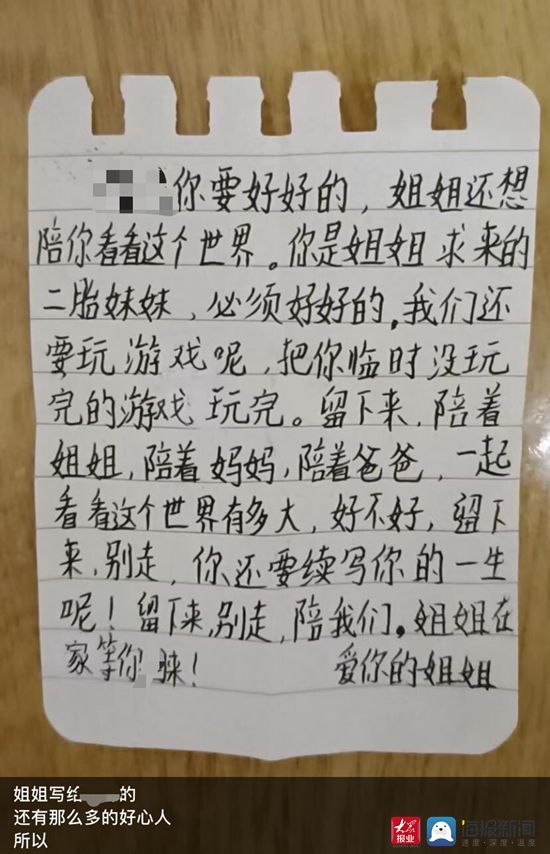 你要好好的，姐姐还想
陪你看看这个世界。你是姐姐求来的
二胎妹妹、必须好好的，我们还
要玩游戏呢，把你临时没玩
完的游戏玩完。留下来，陪着
姐姐，陪着妈妈，陪着爸爸，一起
看看这个世界有多大，好不好，留下
来，别走，你还要续写你的一生
呢！留下来，别走，陪我们。姐姐在
家等你 睐！
爱你的姐姐
姐姐写给 的
还有那么多的好心人
所以
大众报业
海报新闻
速度·深度·温度